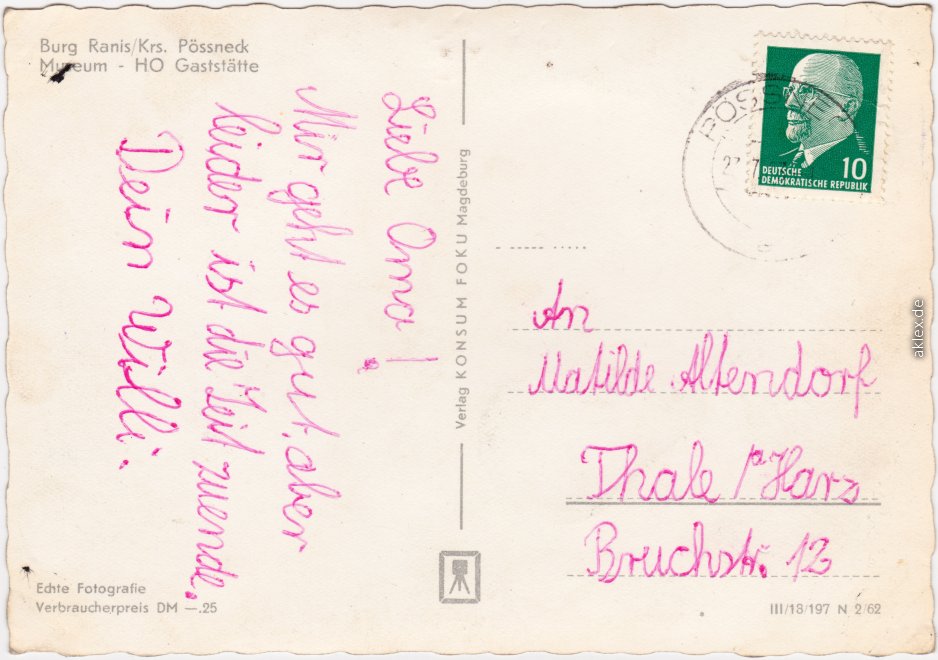 Burg Ranis/Krs. Pössneck
Museum - HO Gaststätte
Liebe Oma!
Mir geht es gut, aber
leider ist die Zeit zuende.
Dein Willi.
Echte Fotografie
Verbraucherpreis DM —.25
Verlag KONSUM FOKU Magdeburg
PÖSSNECK
10
DEUTSCHE
DEMOKRATISCHE REPUBLIK
An
Matilde Altendorf
Thale /Harz
Bruchstr. 13
III/18/197 N 2/62
aklex.de